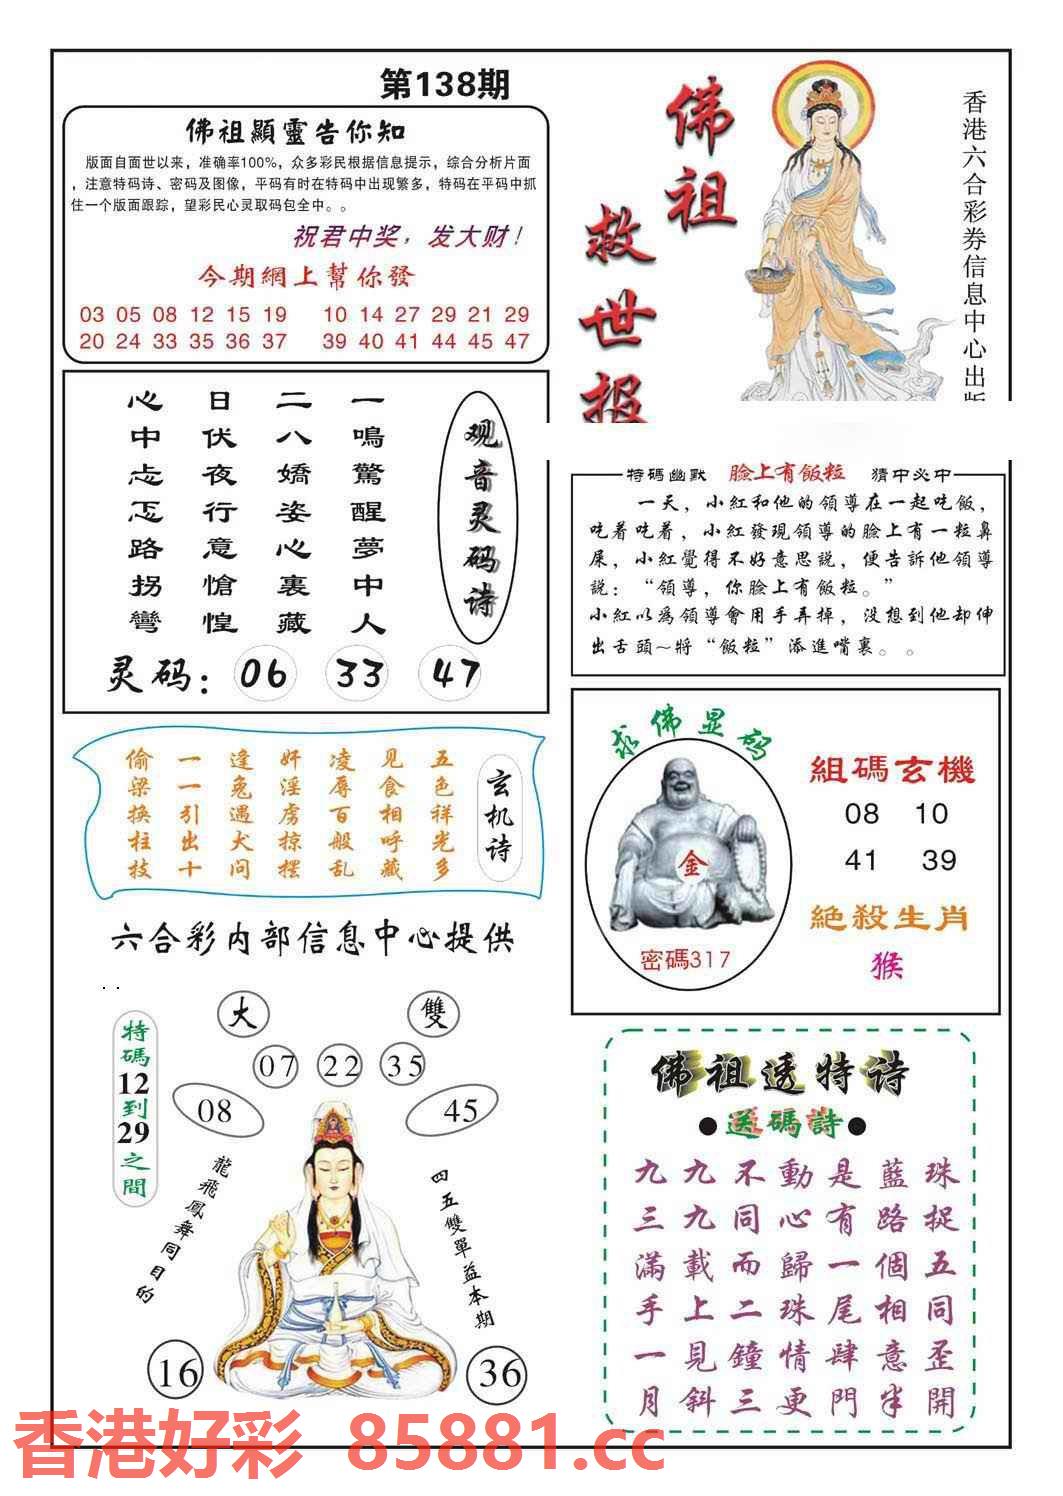 第138期
佛祖顯靈告你知
版面自面世以来，准确率100%，众多彩民根据信息提示，综合分析片面
，注意特码诗、密码及图像，平码有时在特码中出现繁多，特码在平码中抓
住一个版面跟踪，望彩民心灵取码包全中。。
祝君中奖，发大财！
今期網上幫你發
03 05 08 12 15 19 10 14 27 29 21 29
20 24 33 35 36 37 39 40 41 44 45 47
佛祖
救世报
香港六合彩券信息中心出版
观音灵码诗
一鳴驚醒夢中人
二八嬌姿心裏藏
日伏夜行意愴惶
心中忐忑路拐彎
灵码：06 33 47
特碼幽默 臉上有飯粒 猜中必中
一天，小紅和他的領導在一起吃飯，
吃着吃着，小紅發現領導的臉上有一粒鼻
屎，小紅覺得不好意思說，便告訴他領導
說：“領導，你臉上有飯粒。”
小紅以為領導會用手弄掉，没想到他却伸
出舌頭～將“飯粒”添進嘴裏。。
玄机诗
五色祥光多
见食相呼藏
凌辱百般乱
奸淫虏掠摆
逢兔遇犬问
一一引出十
偷梁换柱技
求佛显码
金
密碼317
組碼玄機
08 10
41 39
絕殺生肖
猴
六合彩内部信息中心提供
特碼12到29之間
大 雙
07 22 35
08 45
龍飛鳳舞同目的
四五雙單益本期
16 36
佛祖透特诗
●送碼詩●
九九不動是藍珠
三九同心有路捉
滿載而歸一個五
手上二珠尾相同
一見鐘情肆意歪
月斜三更門半開
香港好彩 85881.cc